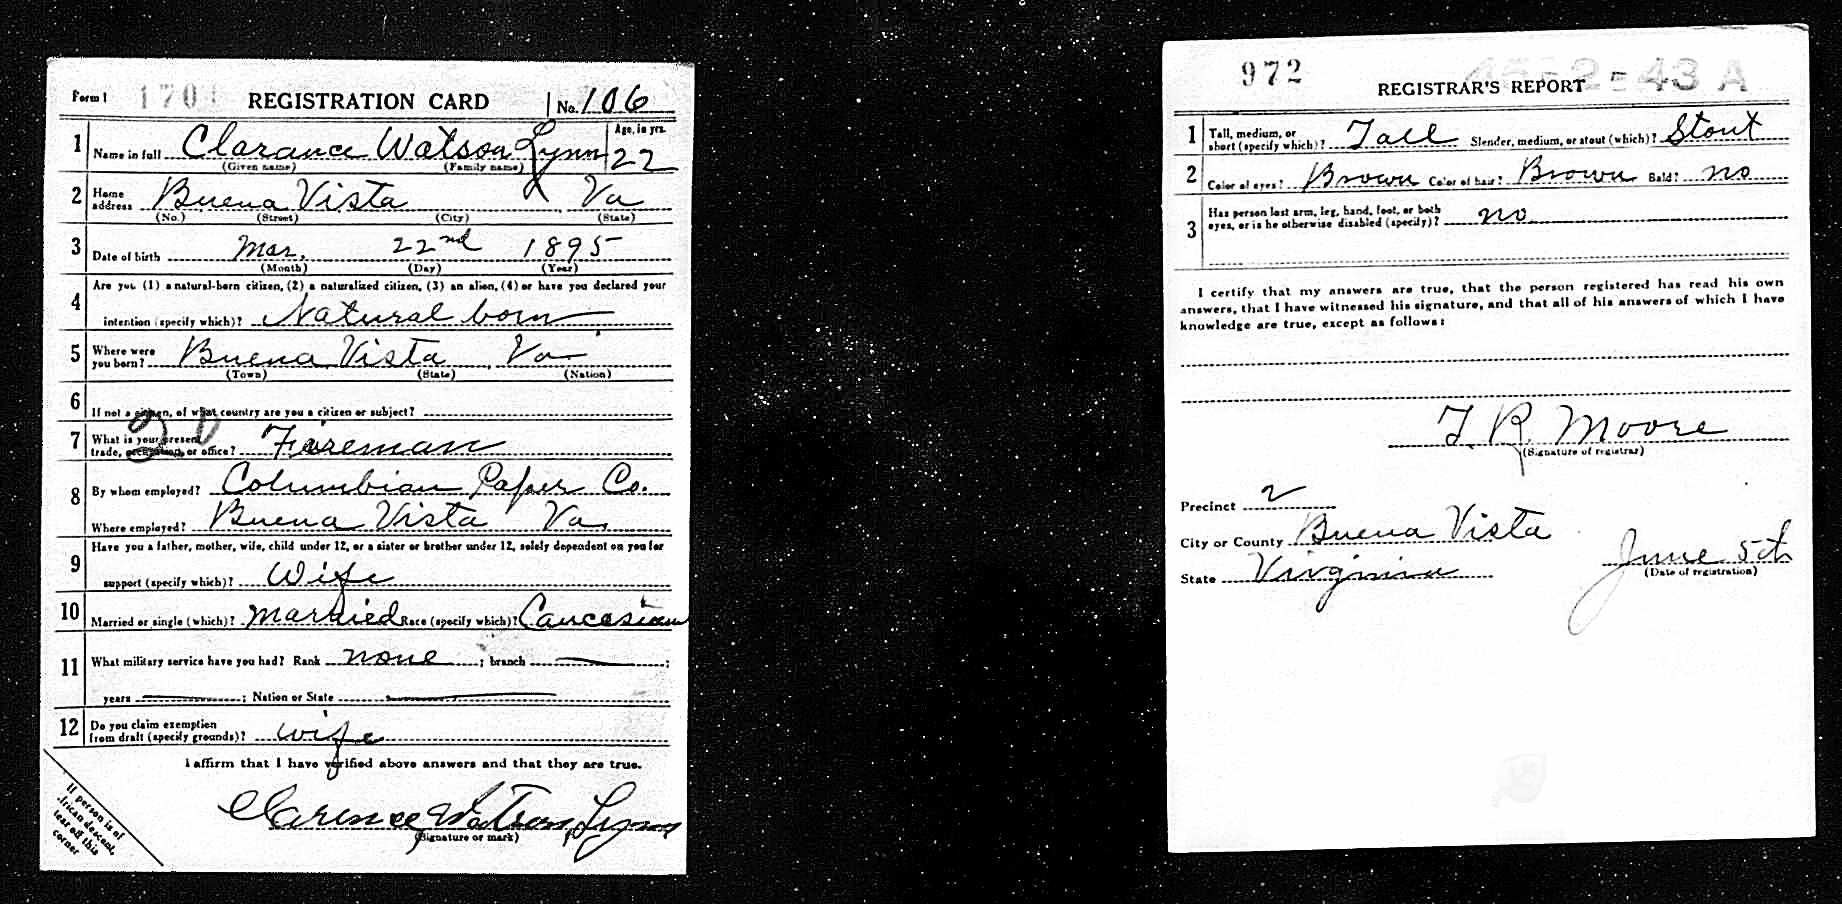 Form 1 170 REGISTRATION CARD No. 106
1 Name in full Clarance Watson Lynn Age, in yrs. 22
(Given name) (Family name)
2 Home address Buena Vista Va
(No.) (Street) (City) (State)
3 Date of birth Mar. 22nd 1895
(Month) (Day) (Year)
4 Are you (1) a natural-born citizen, (2) a naturalized citizen, (3) an alien, (4) or have you declared your
intention (specify which)? Natural born
5 Where were you born? Buena Vista, Va
(Town) (State) (Nation)
6 If not a citizen, of what country are you a citizen or subject?
7 What is your present trade, occupation, or office? Fireman
8 By whom employed? Columbian Paper Co.
Where employed? Buena Vista Va.
9 Have you a father, mother, wife, child under 12, or a sister or brother under 12, solely dependent on you for
support (specify which)? Wife
10 Married or single (which)? married Race (specify which)? Caucasian
11 What military service have you had? Rank none ; branch ;
years ; Nation or State
12 Do you claim exemption from draft (specify grounds)? wife
I affirm that I have verified above answers and that they are true.
Clarence Watson Lynn
(Signature or mark)
If person is of
African descent,
tear off this
corner
972 43 A
REGISTRAR'S REPORT
1 Tall, medium, or short (specify which)? Tall Slender, medium, or stout (which)? Stout
2 Color of eyes? Brown Color of hair? Brown Bald? no
3 Has person lost arm, leg, hand, foot, or both eyes, or is he otherwise disabled (specify)? no
I certify that my answers are true, that the person registered has read his own
answers, that I have witnessed his signature, and that all of his answers of which I have
knowledge are true, except as follows:
T R Moore
(Signature of registrar)
Precinct 2
City or County Buena Vista
State Virginia June 5th
(Date of registration)